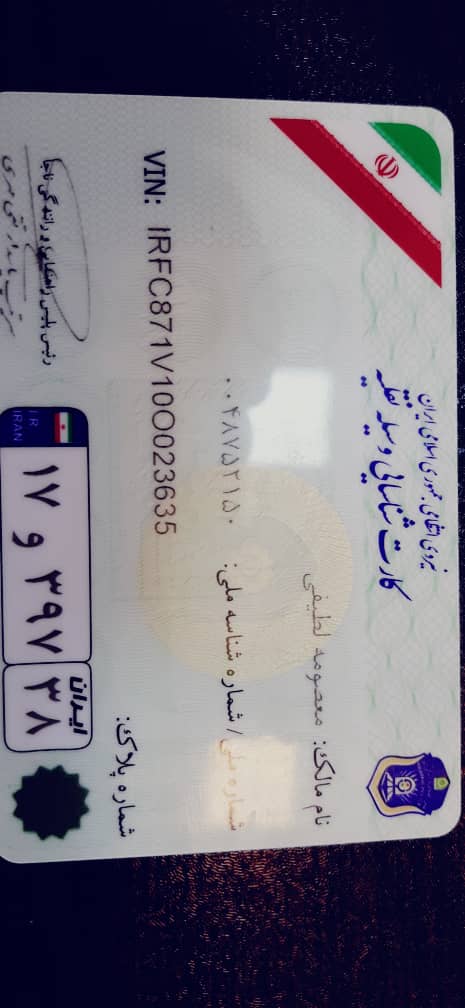 نیروی انتظامی جمهوری اسلامی ایران
کارت شناسایی وسیله نقلیه
نام مالک: معصومه لطیفی
شماره ملی/ شماره شناسه ملی: ۰۰۴۸۷۵۲۱۵۰
VIN: IRFC871V10O023635
شماره پلاک:
I R
IRAN
۱۷ و ۳۹۷
ایران
۳۸
رئیس پلیس راهنمایی و رانندگی ناجا